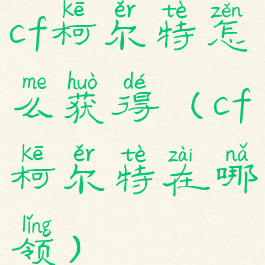 kē ěr tè zěn
cf柯尔特怎
me huò dé
么获得（cf
kē ěr tè zài nǎ
柯尔特在哪
lǐng
领）